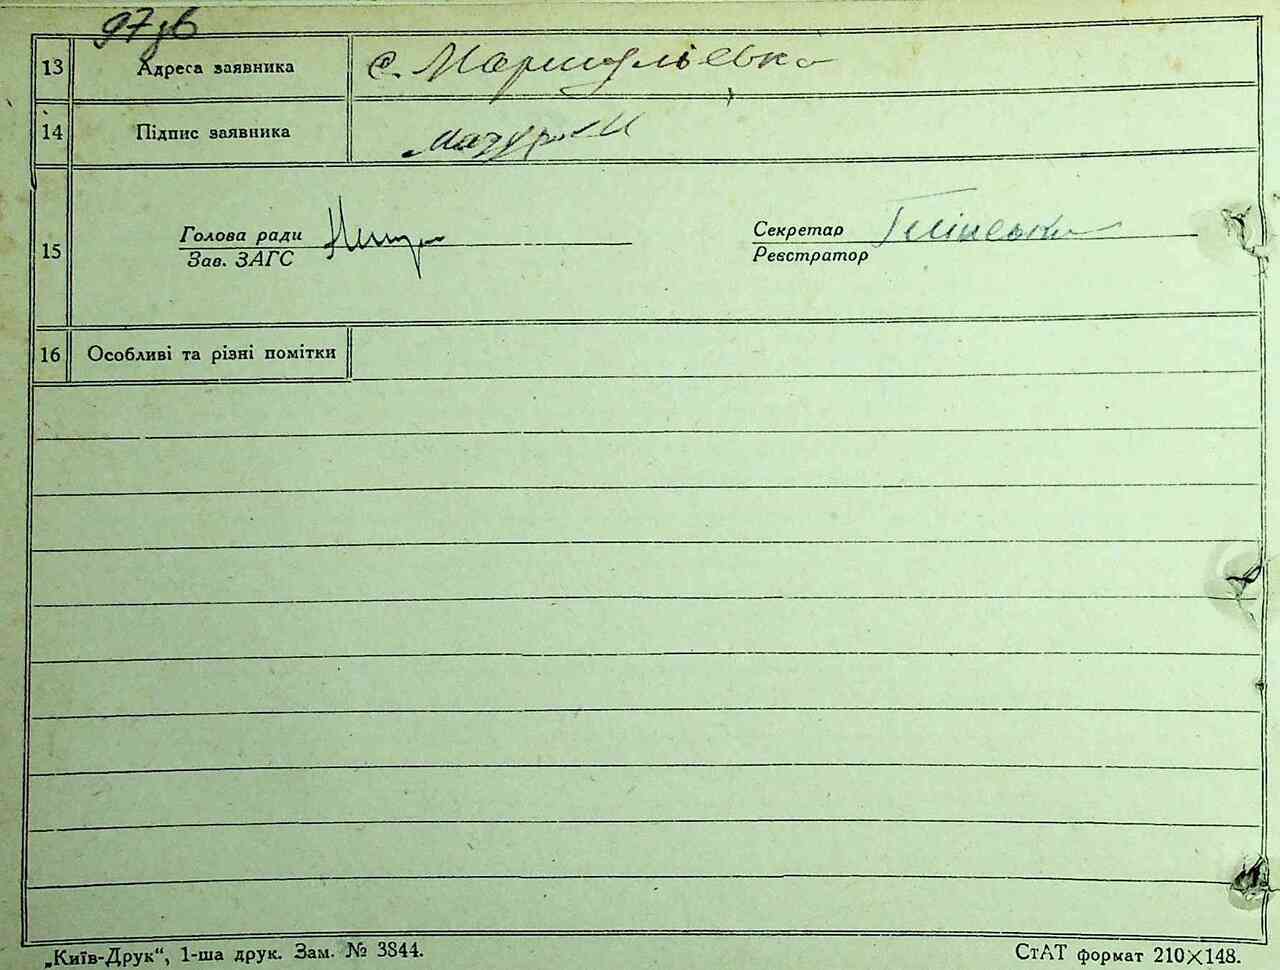 97зв
13 Адреса заявника с. Маргулієвка
14 Підпис заявника Мазурок
15 Голова ради Секретар
Зав. ЗАГС Реєстратор
16 Особливі та різні помітки
„Київ-Друк“, 1-ша друк. Зам. № 3844. СтАТ формат 210×148.